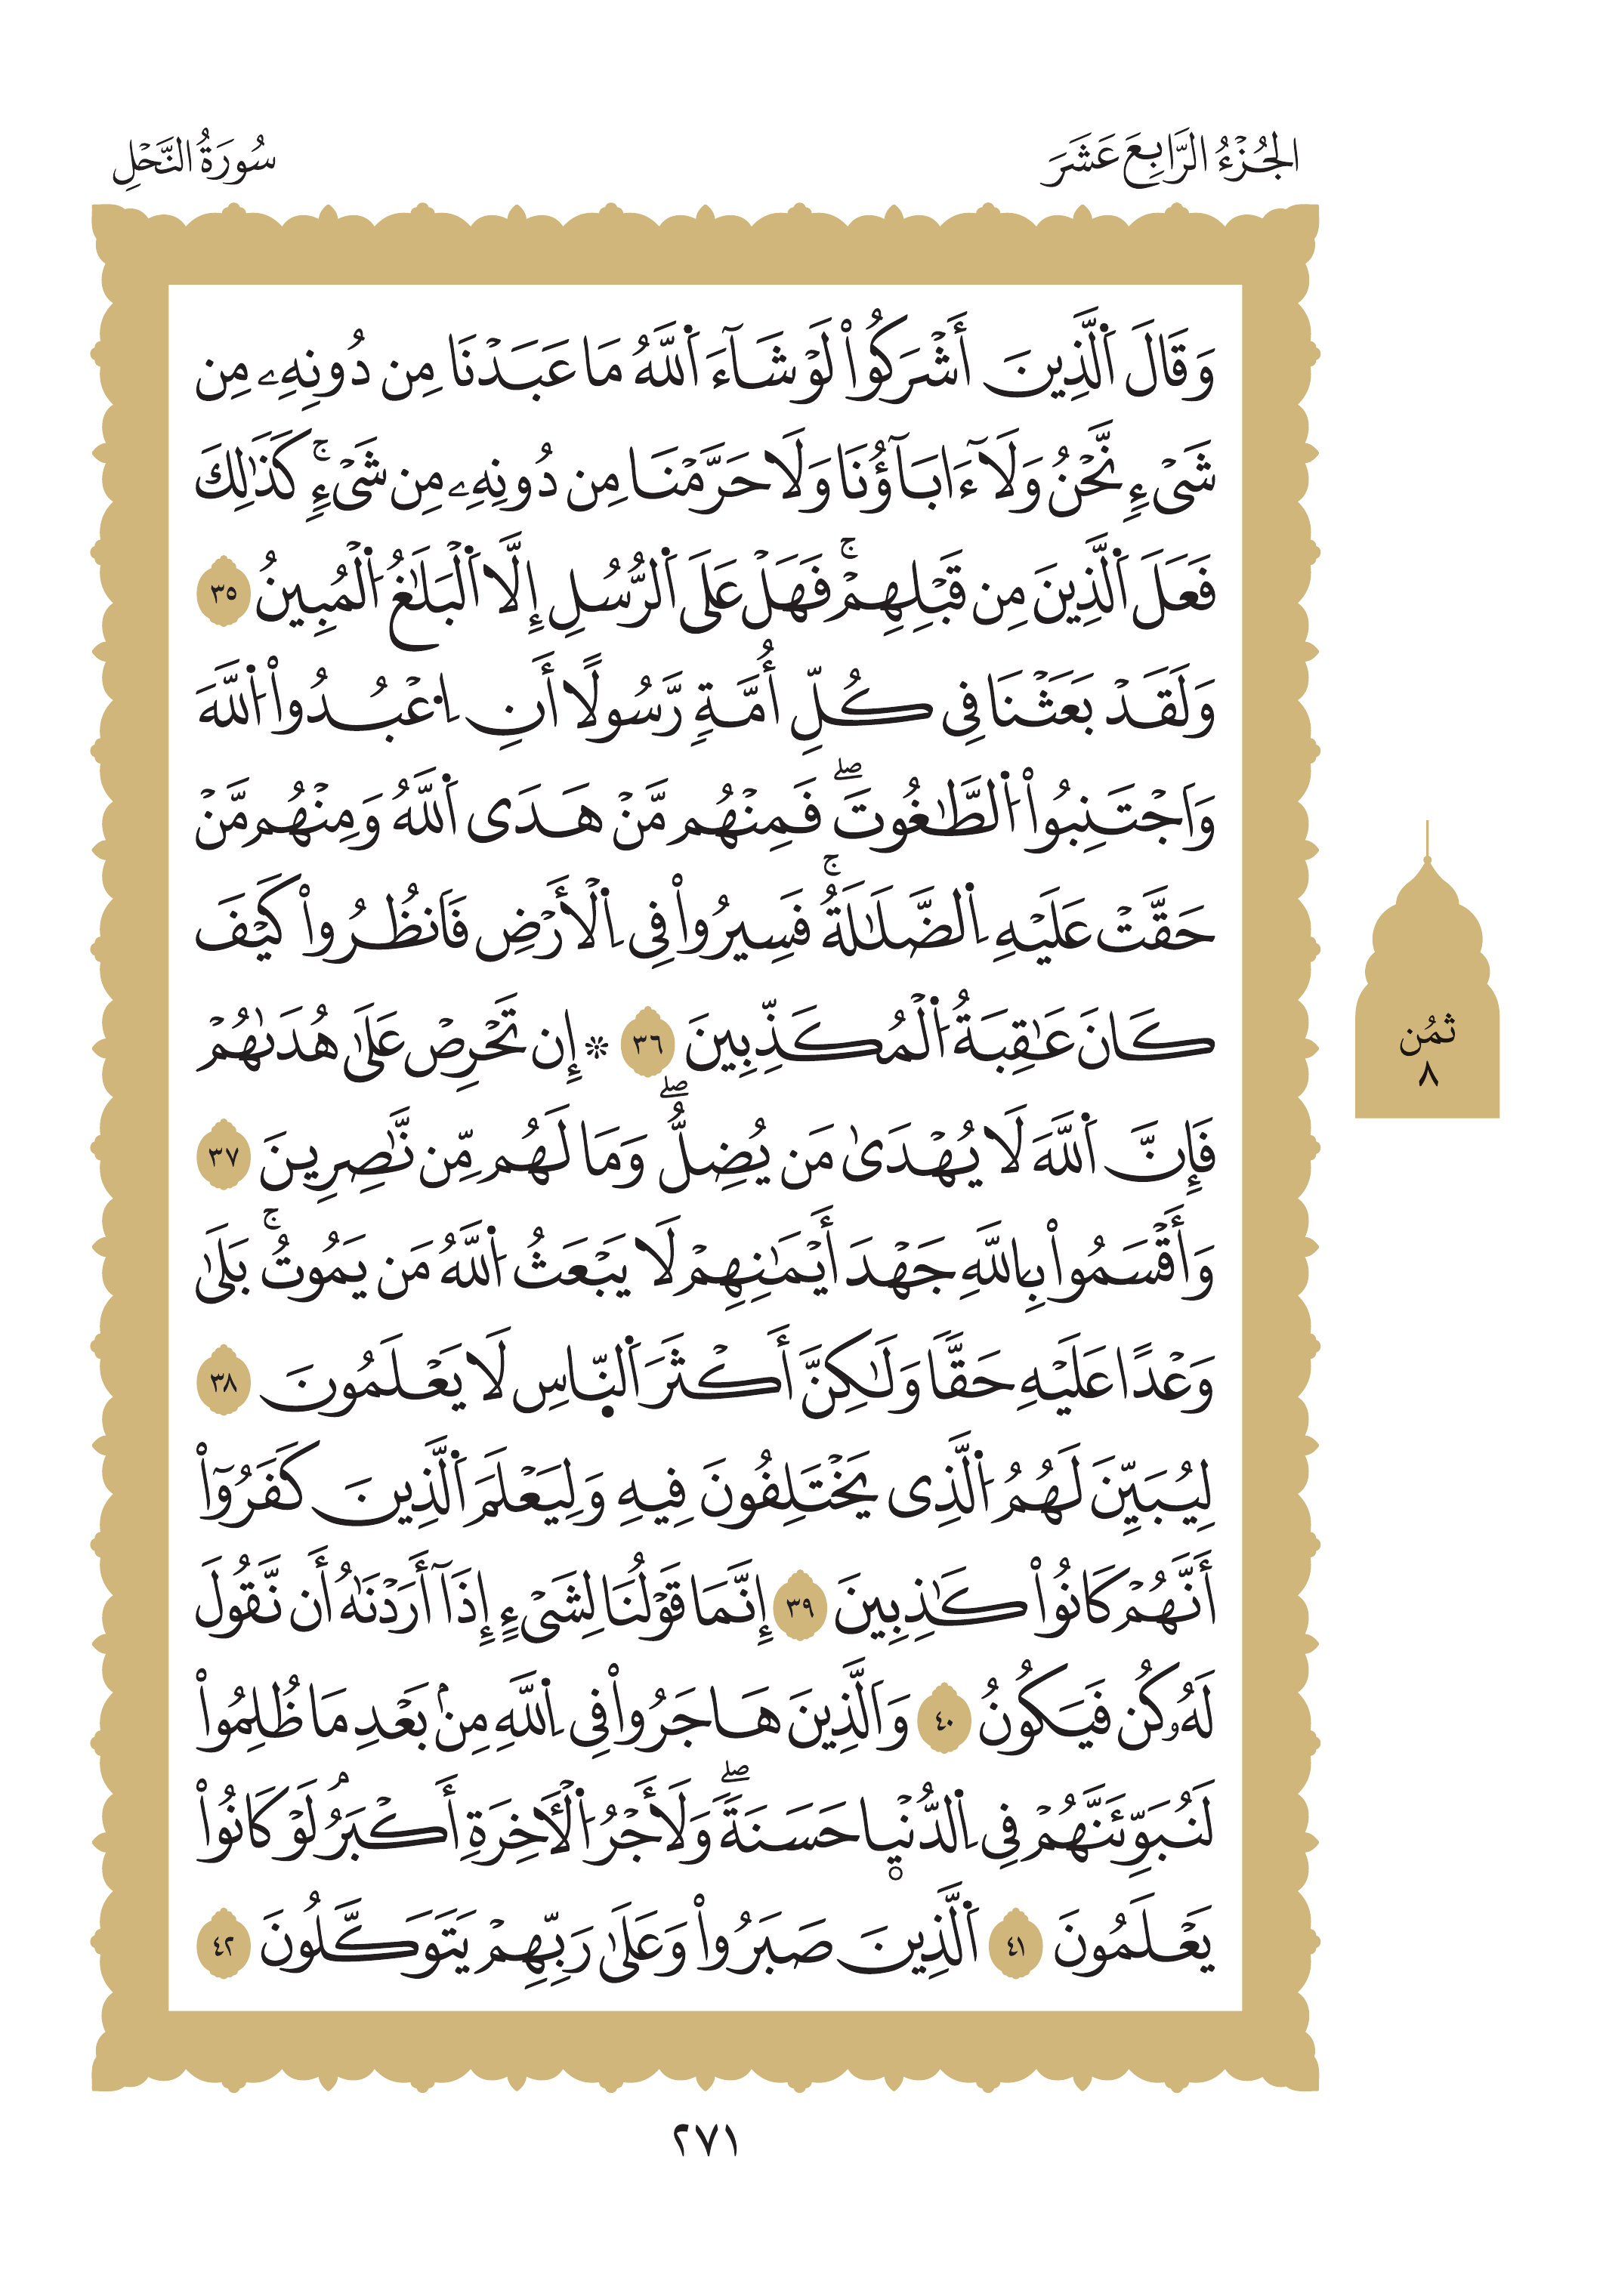 الجُزْءُ الرَّابِعَ عَشَرَ
سُورَةُ النَّحْلِ
وَقَالَ اَ۬لَّذِينَ أَشْرَكُواْ لَوْ شَآءَ اَ۬للَّهُ مَا عَبَدْنَا مِن دُونِهِۦ مِن
شَىْءٍ نَّحْنُ وَلَآ ءَابَآؤُنَا وَلَا حَرَّمْنَا مِن دُونِهِۦ مِن شَىْءٍۚ كَذَٰلِكَ
فَعَلَ اَ۬لَّذِينَ مِن قَبْلِهِمْۚ فَهَلْ عَلَى اَ۬لرُّسُلِ إِلَّا اَ۬لْبَلَٰغُ اُ۬لْمُبِينُ ٣٥
وَلَقَدْ بَعَثْنَا فِى كُلِّ أُمَّةٍ رَّسُولًا أَنِ اِ۟عْبُدُواْ اُ۬للَّهَ
وَاَجْتَنِبُواْ اُ۬لطَّٰغُوتَۖ فَمِنْهُم مَّنْ هَدَى اَ۬للَّهُ وَمِنْهُم مَّنْ
حَقَّتْ عَلَيْهِ اِ۬لضَّلَٰلَةُۚ فَسِيرُواْ فِى اِ۬لْأَرْضِ فَاَنظُرُواْ كَيْفَ
كَانَ عَٰقِبَةُ اُ۬لْمُكَذِّبِينَ ٣٦ ۞ إِن تَحْرِصْ عَلَىٰ هُدَىٰهُمْ
فَإِنَّ اَ۬للَّهَ لَا يُهْدَىٰ مَن يُضِلُّۖ وَمَا لَهُم مِّن نَّٰصِرِينَ ٣٧
وَأَقْسَمُواْ بِاللَّهِ جَهْدَ أَيْمَٰنِهِمْ لَا يَبْعَثُ اُ۬للَّهُ مَن يَمُوتُۚ بَلَىٰ
وَعْدًا عَلَيْهِ حَقًّا وَلَٰكِنَّ أَكْثَرَ اَ۬لنَّاسِ لَا يَعْلَمُونَ ٣٨
لِيُبَيِّنَ لَهُمُ اُ۬لَّذِى يَخْتَلِفُونَ فِيهِ وَلِيَعْلَمَ اَ۬لَّذِينَ كَفَرُوٓاْ
أَنَّهُمْ كَانُواْ كَٰذِبِينَ ٣٩ إِنَّمَا قَوْلُنَا لِشَىْءٍ إِذَآ أَرَدْنَٰهُ أَن نَّقُولَ
لَهُۥ كُن فَيَكُونُ ٤٠ وَاَلَّذِينَ هَاجَرُواْ فِى اِ۬للَّهِ مِنۢ بَعْدِ مَا ظُلِمُواْ
لَنُبَوِّئَنَّهُمْ فِى اِ۬لدُّنْي۪ا حَسَنَةًۖ وَلَأَجْرُ اُ۬لْأٓخِرَةِ أَكْبَرُۘ لَوْ كَانُواْ
يَعْلَمُونَ ٤١ اَ۬لَّذِينَ صَبَرُواْ وَعَلَىٰ رَبِّهِمْ يَتَوَكَّلُونَ ٤٢
ثُمُن
٨
٢٧١